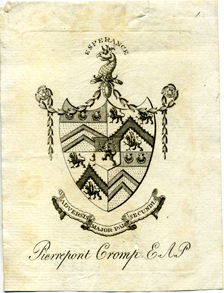 ESPERANCE
ADVERSIS MAJOR PAR SECUNDIS
Pierrepont Cromp E A P